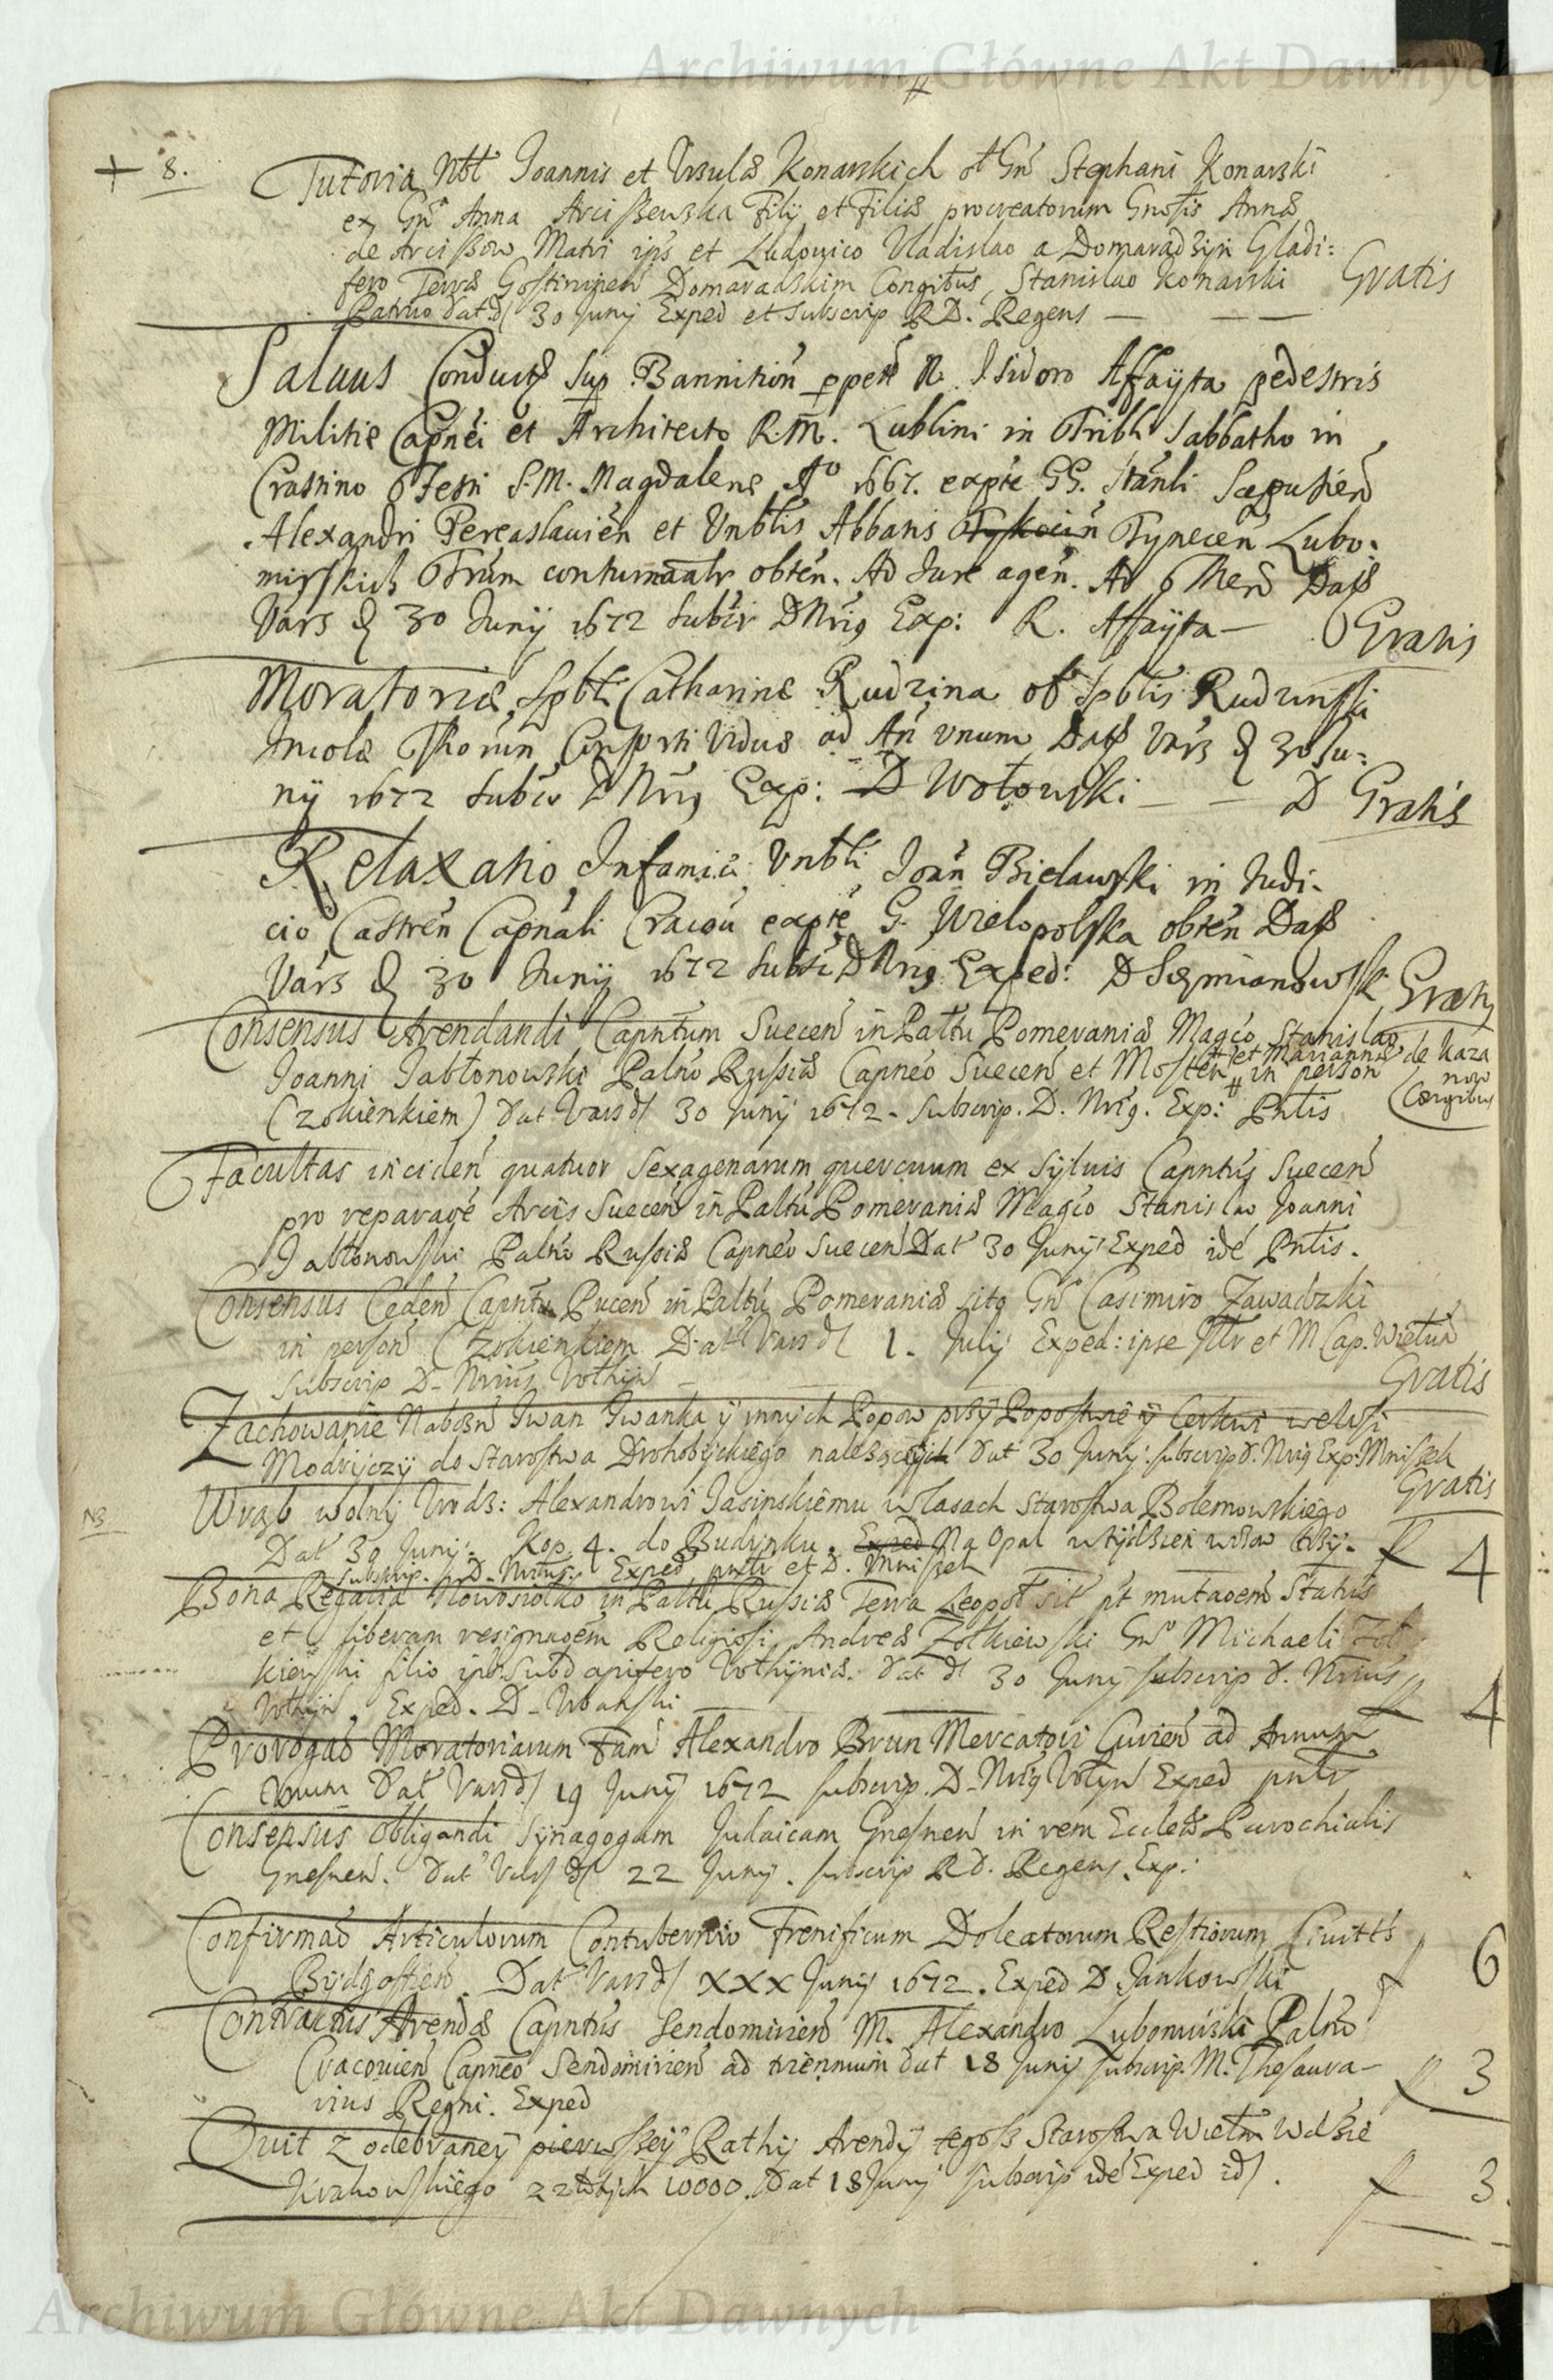 Archiwum Główne Akt Dawnych
+ 8. Tutoria Nbł Joannis et Ursulæ Konarskich oł Gń Stephani Konarski
ex Gń Anna Arcissewska Filij et Filiæ procreatorum Gnosis Annæ
de Arcissow Matri ips et Ludovico Vladislao a Domaradzyn Gladi:
fero Terræ Gostininen Domaradskim Congibus, Stanislao Konarski Gratis
Patruo dat d 30 Junij Exped et Subscrip RD. Regens — — —
Salvus Conduct9 sup Bannition ppet N. Isidoro Affayta pedestris
Militie Capnei et Architecto R.M. Lublini in Tribli Sabbatho in
Crastino Festi S.M. Magdalene Ao 1667. expte GG. Stanli Scepusien
Alexandri Pereaslavien et Vnblis Abbatis Tyskocin Tynecen Lubo:
mirskich Frum contumaalr obten. Ad Jure agen. Dat9
Vars d 30 Junij 1672 Subscr DNrig Exp: R. Affayta — Gratis
Moratoriæ Spbli Catharinæ Rudzina ol Spblis Rudzinski
Incolæ Thorun Consorti Viduæ ad An vnum Dat9 Vars d 30 Ju:
nij 1672 Subscr DNrig Exp: D Wołowski — — D Gratis
Relaxatio Infamiæ Vnbli Joan Bielawski in Judi:
cio Castren Capnali Cracou expte G. Wielopolska obten Dat9
Vars d 30 Junij 1672 Subscr DNrig Exped: D Szemianowski Gratis
Consensus Arendandi Capntum Suecen in Paltu Pomeraniæ Magco Stanislao
Joanni Jabłonowski Palno Russiæ Capneo Suecen et Mosten # in person
# et Mariannæ de Kaza
now
Congibus
(zokienkiem) dat Vars d 30 Junij 1672 - Subscrip. D. Nrig. Exp: Pntis
Facultas inciden quatuor Sexagenarum quercuum ex Sylvis Capntus Suecen
pro reparaoe Arcis Suecen in Paltu Pomeraniæ Magco Stanislao Joanni
Jabłonowski Palno Russiæ Capneo Suecen Dat 30 Junij Exped ide Pntis.
Consensus Ceden Capntu Pucen in Paltu Pomeraniæ sito Gń Casimiro Zawadzki
in person (zokienkiem Dat Vars d 1. Julij Exped: ipse Illr et M Cap. Wielun
Subscrip D - Nrius Vołhyn — Gratis
Zachowanie Nabozn Iwan Iwanka ÿ innych Popow przÿ Popostwie ÿ Cerkwi we Wsi
Modryczÿ do Starostwa Drohobyckiego nalezących Dat 30 Junij. subscrip d. Nrig Exp: Mnissek
Gratis
N3 Wrąb wolnÿ Urodz: Alexandrowi Jasinskiemu w lasach Starostwa Bolemowskiego
Dat 30 Junij. Kop. 4. do Budynku. Exped Na Opal w tydzien wozow trzÿ. f 4
Subscrip. D - Nrius: Exped pntr et D. Mnissek
Bona Regalia Nowosiolko in Paltu Russiæ Terra Leopol sit pt mutaoem Status
et liberam resignaoem Religiosi Andreæ Zołkiewski Gń Michaeli Zoł
kiewski filio ips Subdapifero Vołhyniæ. Dat d 30 Junij subscrip d. Nrius
Vołhyn. Exped. D - Urbanski f 4
Prorogao Moratoriarum Fam Alexandro Brun Mercatori Curien ad Annum
vnum Dat Vars d 19 Junij 1672 subscrip. D - Nrig Vołyn Exped pntr
Consensus obligandi Synagogam Judaicam Gnesnen in rem Eccleæ Parochialis
Gnesnen. Dat Vars d 22 Junij. subscrip RD. Regens. Exp:
Confirmao Articulorum Contubernio Frenificum Doleatorum Restiorum Civittis
Bydgostien Dat Vars d XXX Junij 1672. Exped D Jankowski f 6
Contractus Arendæ Capntus Sendomirien M. Alexandro Lubomirski Palno
Cracovien Capneo Sendomirien ad triennium dat 18 Junij subscrip. M. Thesaura-
rius Regni. Exped f 3
Quit z odebraneÿ pierwsseÿ Rathÿ Arendÿ tegoss Starostwa Wielm Wdzie
Krakowskiego 10000. Dat 18 Junij subscrip ide Exped id. f 3.
Archiwum Główne Akt Dawnych